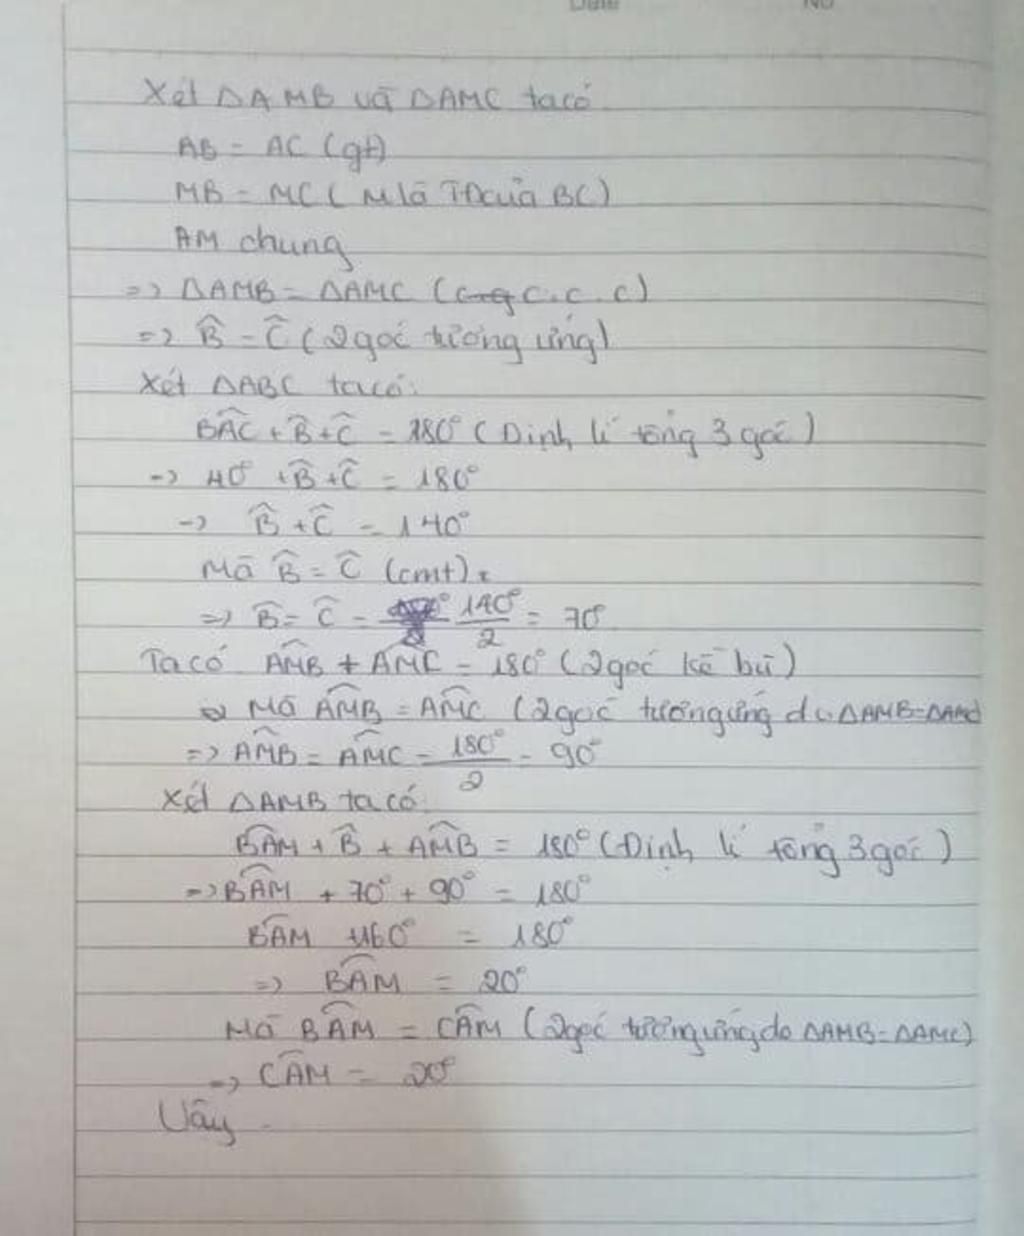 Date No
Xét ΔAMB và ΔAMC ta có
AB = AC (gt)
MB = MC ( M là TĐ của BC)
AM chung
=> ΔAMB = ΔAMC ( c.c.c)
=> B̂ = Ĉ ( 2 góc tương ứng)
Xét ΔABC ta có:
BÂC + B̂ + Ĉ = 180° ( Định lí tổng 3 góc )
-> 40° + B̂ + Ĉ = 180°
-> B̂ + Ĉ = 140°
Mà B̂ = Ĉ (cmt)
=> B̂ = Ĉ = 140°/2 = 70°
Ta có AM̂B + AM̂C = 180° (2 góc kề bù )
Mà AM̂B = AM̂C ( 2 góc tương ứng do ΔAMB = ΔAMC
=> AM̂B = AM̂C = 180°/2 = 90°
Xét ΔAMB ta có
BÂM + B̂ + AM̂B = 180° (Định lí tổng 3 góc )
=> BÂM + 70° + 90° = 180°
BÂM + 160° = 180°
=> BÂM = 20°
Mà BÂM = CÂM ( 2 góc tương ứng do ΔAMB = ΔAMC)
=> CÂM = 20°
Vậy